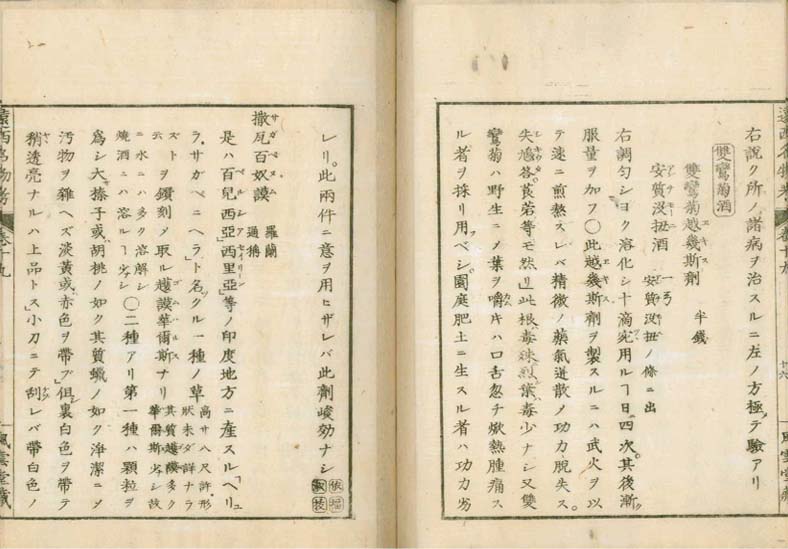 右説ク所ノ諸病ヲ治スルニ左ノ方極テ驗アリ
雙鸞菊酒
雙鸞菊越幾斯劑 半錢
エキス
安質没扭酒 一弓 安質没扭ノ條ニ出
アンチモニー
右調勻シヨク溶化シ十滴宛用ルヿ日四次其後漸ク
服量ヲ加フ〇此越幾斯劑ヲ製スルニハ武火ヲ以
テ速ニ煎熬スレバ精微ノ藥氣逬散ノ功力脱失ス。
失鳩答。莨菪等モ然リ」此根毒烈葉毒少ナシ又雙
鸞菊ハ野生ニノ葉ヲ嚼片ハ口舌忽チ焮熱腫痛ス
ル者ヲ採リ用ベシ。園庭肥土ニ生スル者ハ功力劣
遠西名物考 卷十九 十六 風雲堂藏
レリ。此兩件ニ意ヲ用ヒザレバ此劑峻効ナシ
撒瓦百奴謨 羅蘭 通稱
サガペニュム
是ハ百兒西亞」西里亞」等ノ印度地方ニ産スル「ヘリュ
ラ、サガペニヘラ」ト名クル一種ノ草 高サ八尺許形 狀未ダ詳ナラ
ズト云 ヲ鑚刻メ取ル護謨華爾斯ナリ 其質護謨多ク 華爾斯少シ故
ゴムハルス
ニ水ニハ多ク溶解シ 燒酒ニハ溶ルヿ少シ 〇二種アリ第一種ハ顆粒ヲ
爲シ大榛子或胡桃ノ如ク其質蠟ノ如ク淨潔ニメ
汚物ヲ雜ヘズ淡黄或赤色ヲ帶ブ」但裏白色ヲ帶テ
稍透亮ナルハ上品トス」小刀ニテ刮レバ帶白色ノ
遠西名物考 卷十九 風雲堂藏